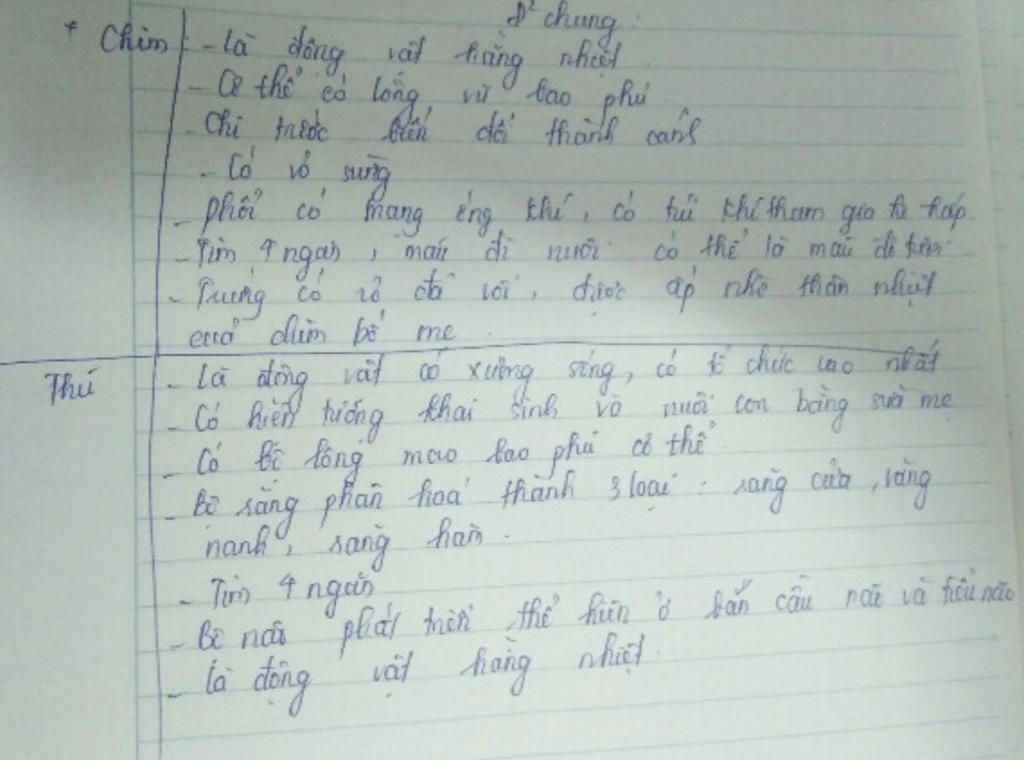 đ² chung:
+ Chim : - là động vật hằng nhiệt
- Cơ thể có lông vũ bao phủ
- Chi trước biến đổi thành cánh
- Có vỏ sừng
- phổi có mang ống khí, có túi khí tham gia hô hấp
- Tim 4 ngăn, máu đi nuôi cơ thể là máu đỏ tươi
- Trứng có vỏ đá vôi, được ấp nhờ thân nhiệt
của chim bố mẹ.
Thú - Là động vật có xương sống, có tổ chức cao nhất
- Có hiện tượng thai sinh và nuôi con bằng sữa mẹ
- Có bộ lông mao bao phủ cơ thể
- Bộ răng phân hoá thành 3 loại : răng cửa, răng
nanh, răng hàm.
- Tim 4 ngăn
- Bộ não phát triển thể hiện ở bán cầu não và tiểu não
- Là động vật hằng nhiệt.